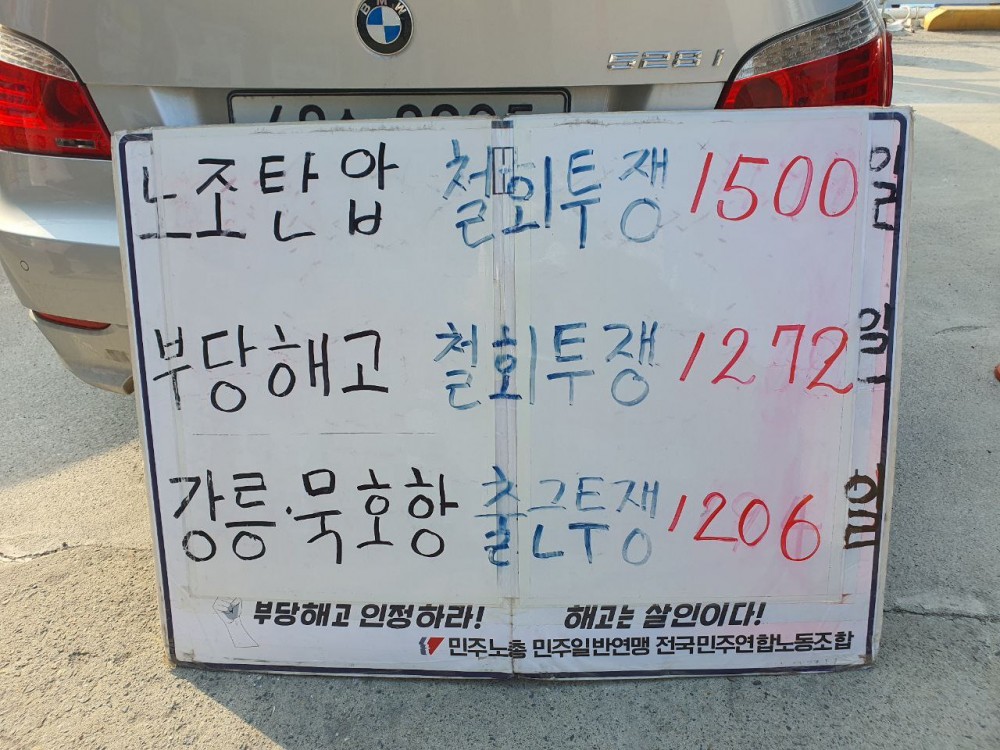 BMW
528i
노조탄압 철회투쟁 1500일
부당해고 철회투쟁 1272일
강릉·묵호항 출근투쟁 1206일
부당해고 인정하라! 해고는 살인이다!
민주노총 민주일반연맹 전국민주연합노동조합